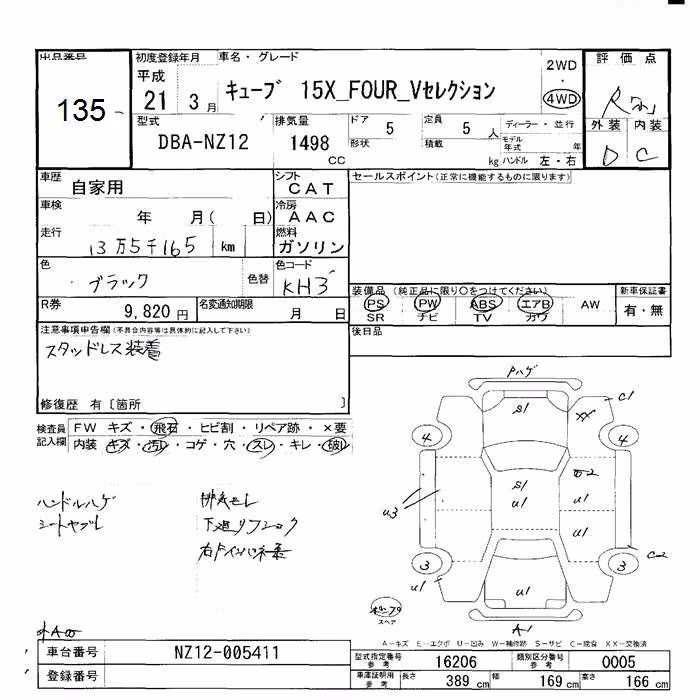 出品番号
135
初度登録年月
平成
21 3月
車名・グレード
キューブ 15X_FOUR_Vセレクション
2WD
・
4WD
評価点
R
外装 内装
D C
型式
DBA-NZ12
排気量
1498
CC
ドア 5
形状
定員 5 人
積載 kg
ディーラー・並行
モデル年式 年
ハンドル 左・右
車歴
自家用
シフト
CAT
車検
年 月( 日)
冷房
AAC
走行
13万5千165 km
燃料
ガソリン
色
ブラック
色替
色コード
KH3
R券
9,820円
名変通知期限
月 日
セールスポイント(正常に機能するものに限ります)
装備品(純正品に限り○をつけてください)
PS PW ABS エアB AW
SR ナビ TV カワ
新車保証書
有・無
後日品
注意事項申告欄(不具合内容等は具体的に記入して下さい)
スタッドレス装着
修復歴 有〔箇所 〕
検査員
記入欄
FW キズ・飛石・ヒビ割・リペア跡・×要
内装 キズ・汚レ・コゲ・穴・スレ・キレ・破レ
ハンドルハゲ
シートヤブレ
排気モレ
Pハゲ
S1
C1
XX
4
4
S1
U1
U1
U1
U3
3
3
C2
U1
U1
スペア
A1
A-キズ E-エクボ U-凹み W-補修跡 S-サビ C-腐食 XX-交換済
車台番号 NZ12-005411
登録番号
型式指定番号
参考
16206
類別区分番号
参考
0005
車庫証明用
参考
長さ 389 cm 幅 169 cm 高さ 166 cm